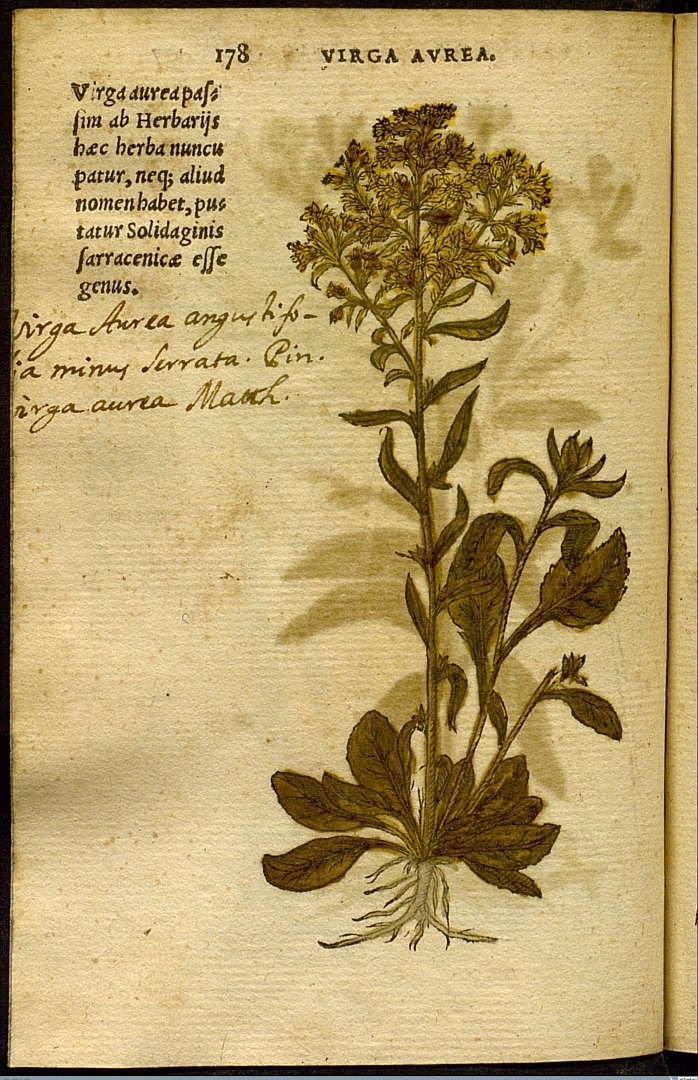 178 VIRGA AVREA.
Virga aurea pas⸗
sim ab Herbarijs
hæc herba nuncu
patur, neq; aliud
nomen habet, pu⸗
tatur Solidaginis
sarracenicæ esse
genus.
Virga Aurea angustifo-
lia minus serrata. Pin.
Virga aurea Matth.